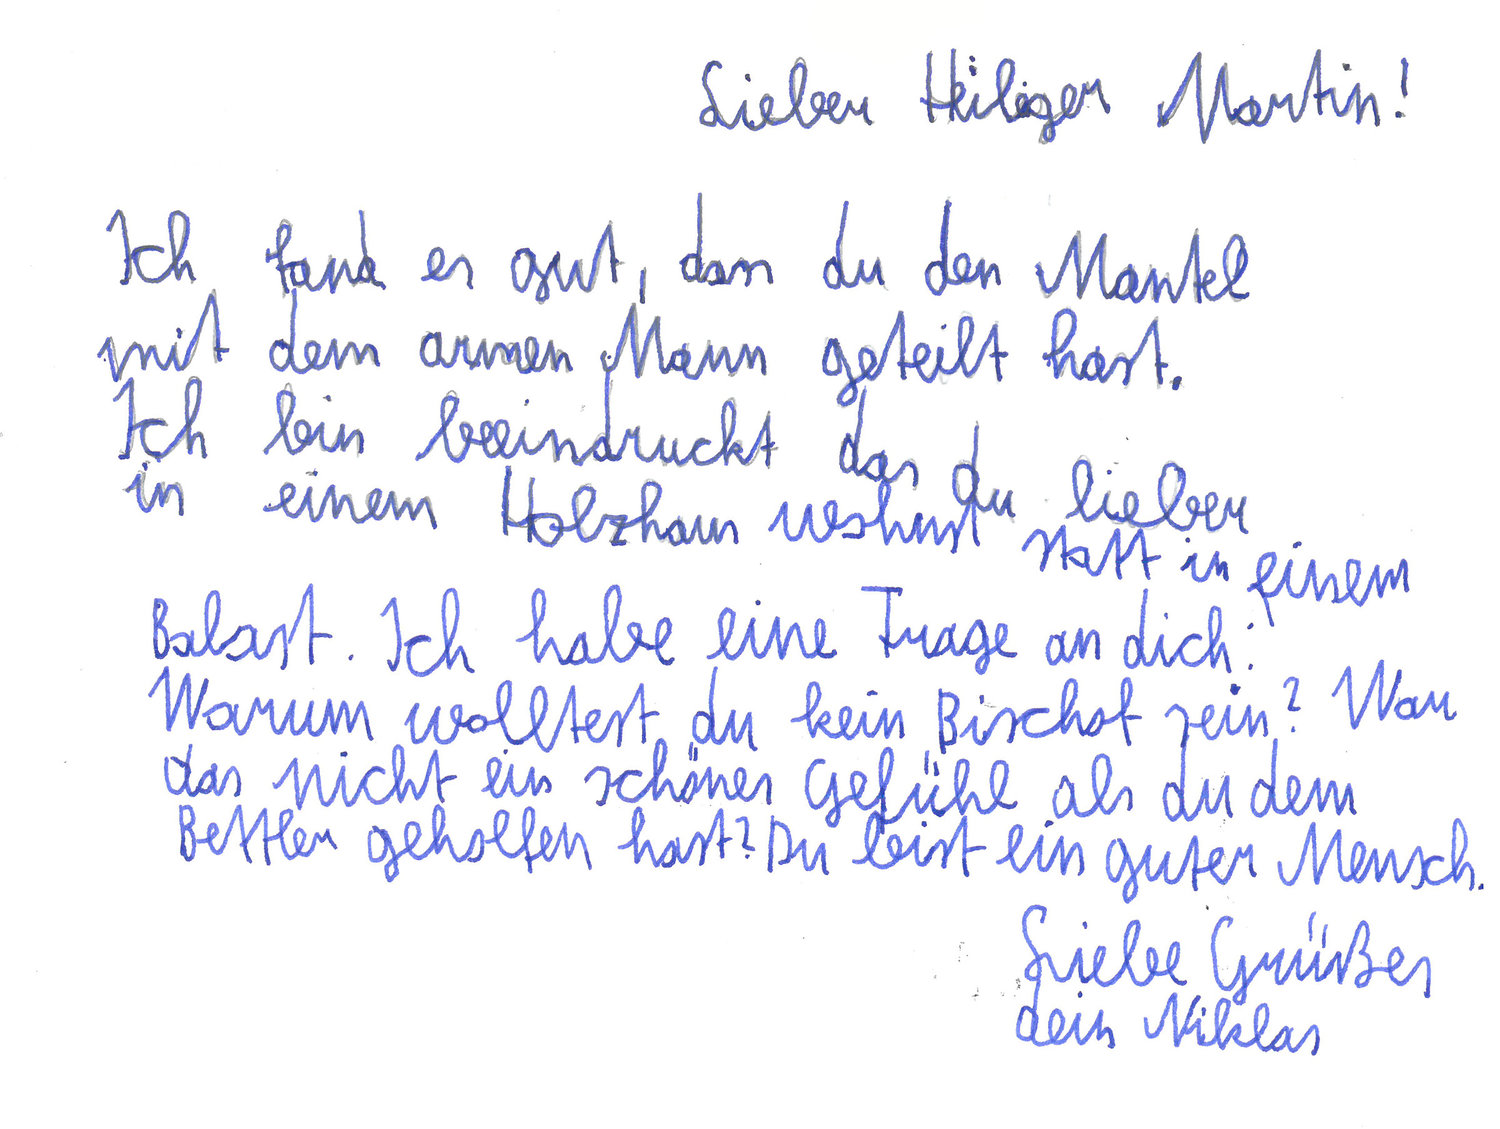 Lieber Heiliger Martin!
Ich fand es gut, dass du den Mantel
mit dem armen Mann geteilt hast.
Ich bin beeindruckt das du lieber
in einem Holzhaus wohnst statt in einem
Balast. Ich habe eine Frage an dich:
Warum wolltest du kein Bischof sein? War
das nicht ein schönes Gefühl als du dem
Bettler geholfen hast? Du bist ein guter Mensch.
Liebe Grüße
dein Niklas